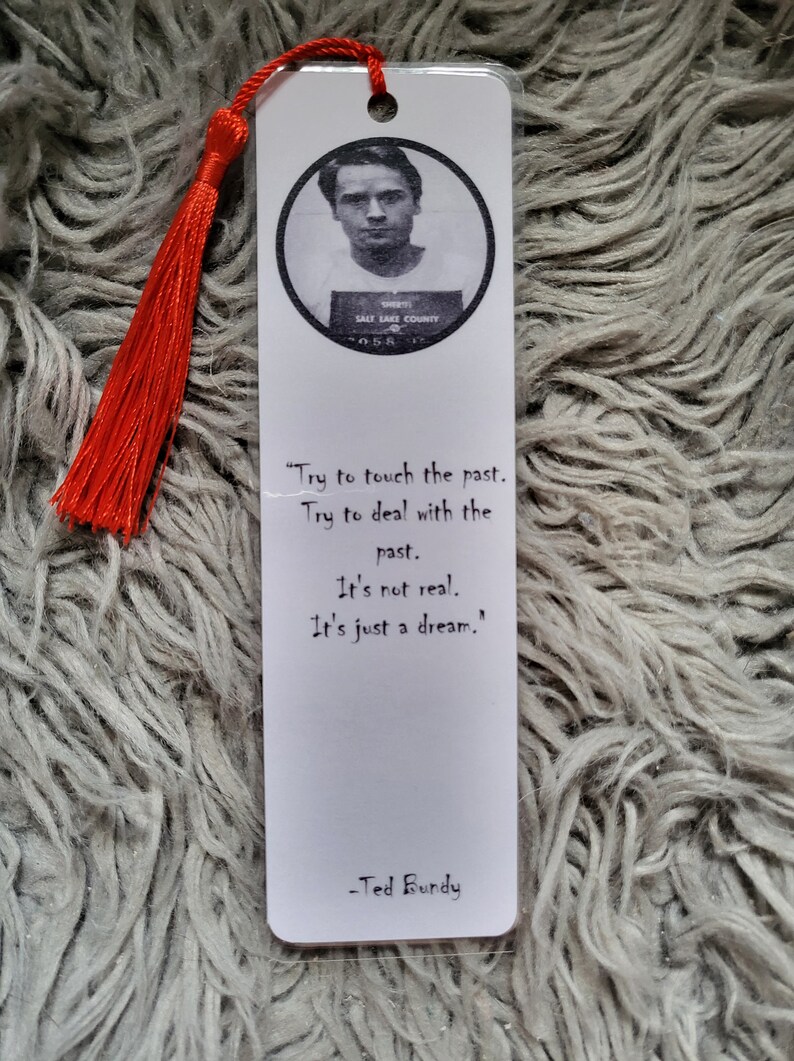 SHERIFF
SALT LAKE COUNTY
“Try to touch the past.
Try to deal with the
past.
It's not real.
It's just a dream."
-Ted Bundy